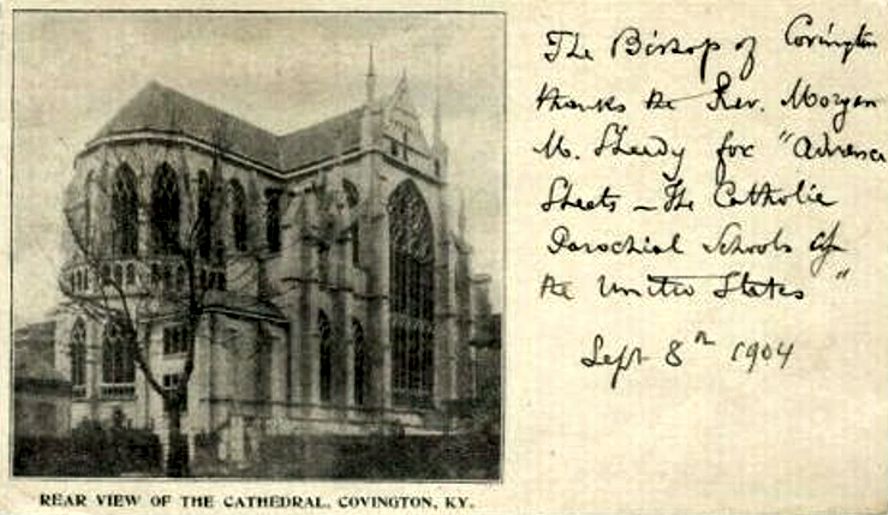 The Bishop of Covington
thanks the Rev. Morgan
M. Sheedy for "Advance
Sheets – The Catholic
Parochial Schools of
the United States"
Sept 8th 1904
REAR VIEW OF THE CATHEDRAL, COVINGTON, KY.